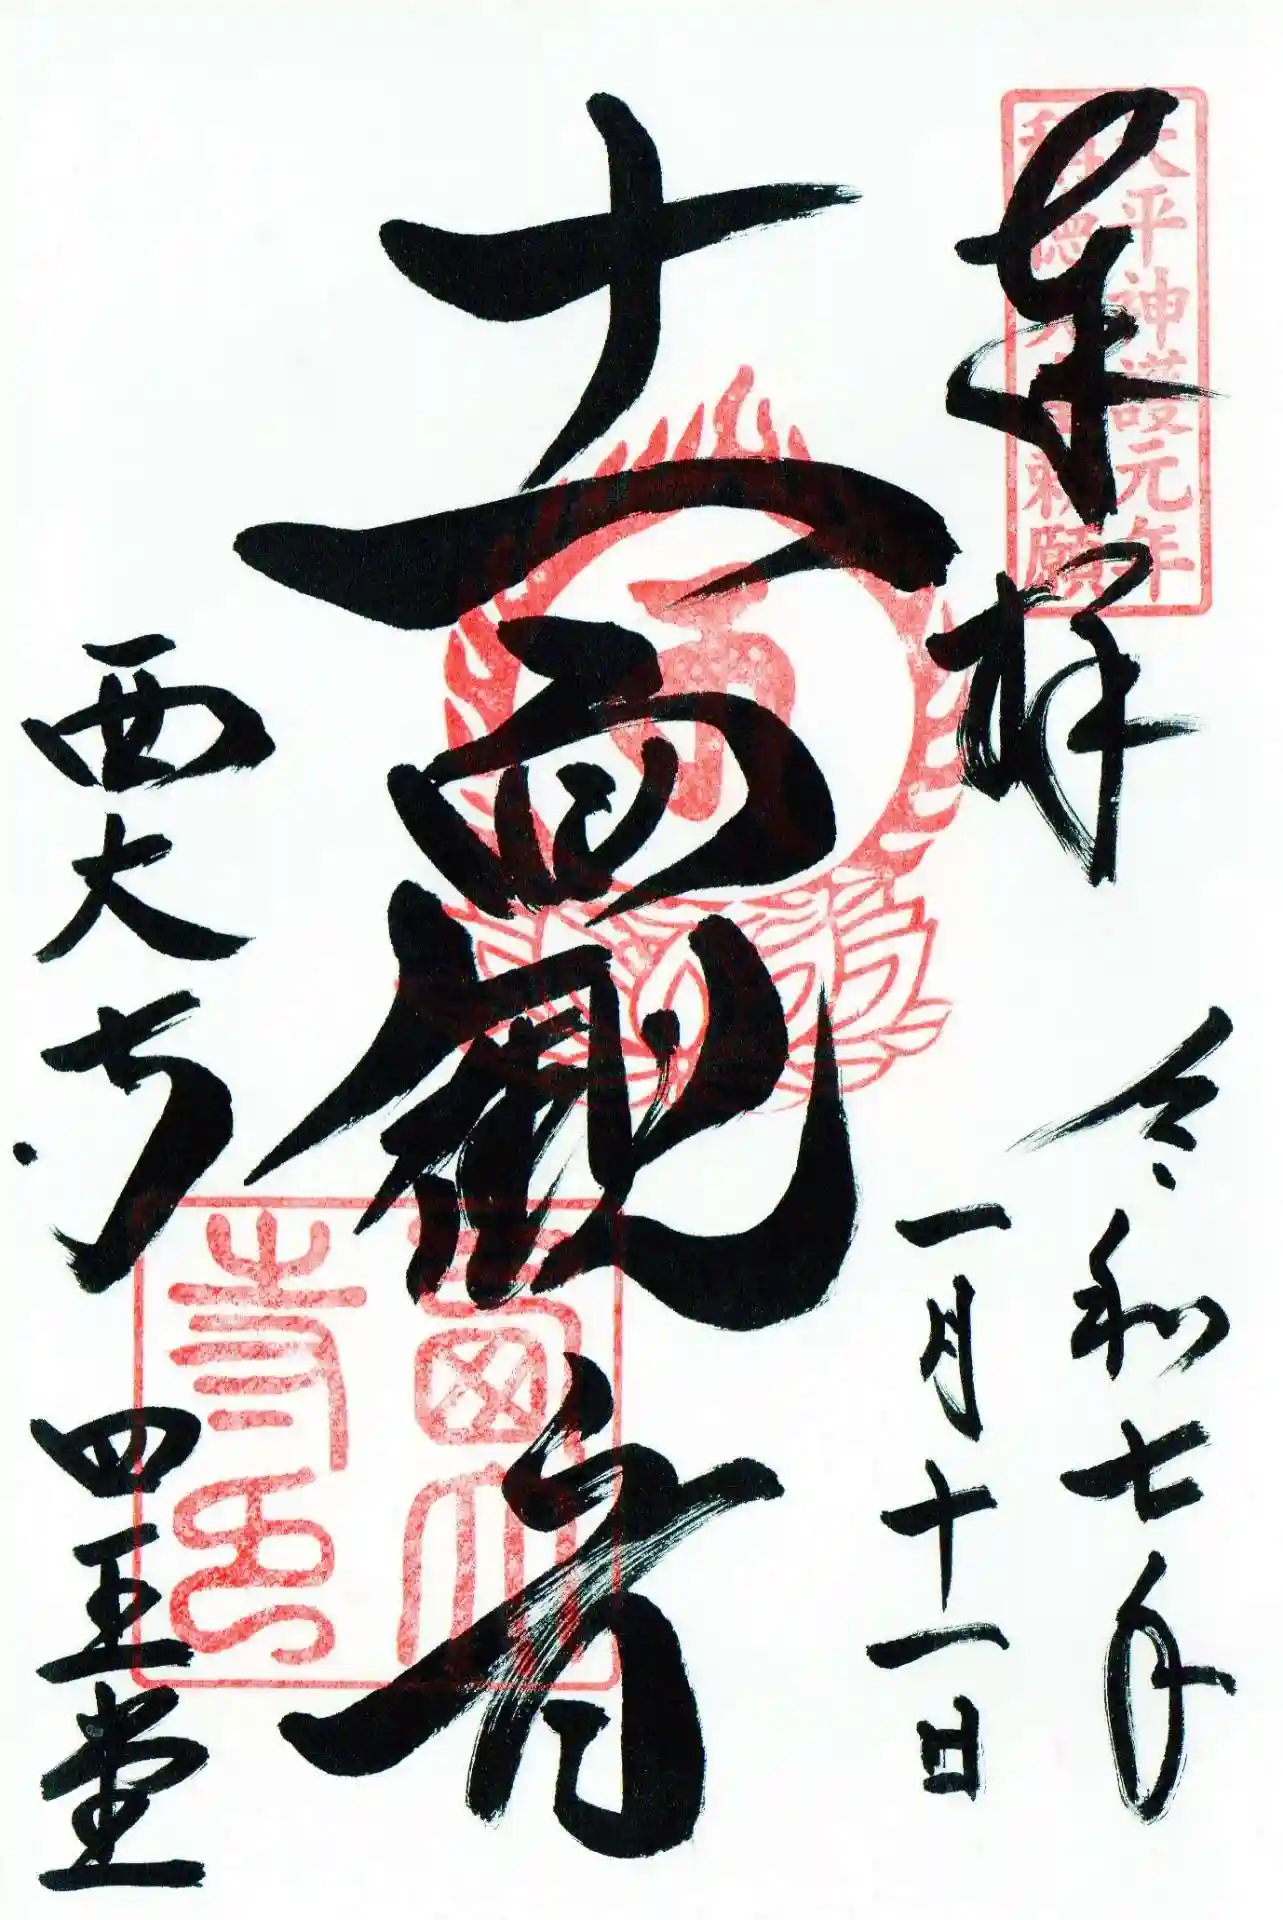 奉拝
天平神護元年
称徳天皇勅願
令和七年
一月十一日
十一面観音
西大寺
四王堂
西大寺印